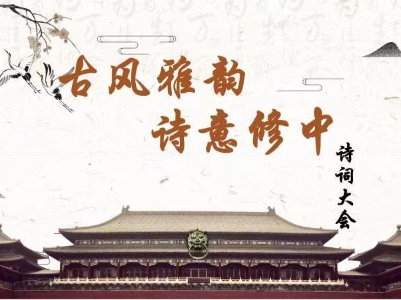 古风雅韵
诗意修中
诗词大会